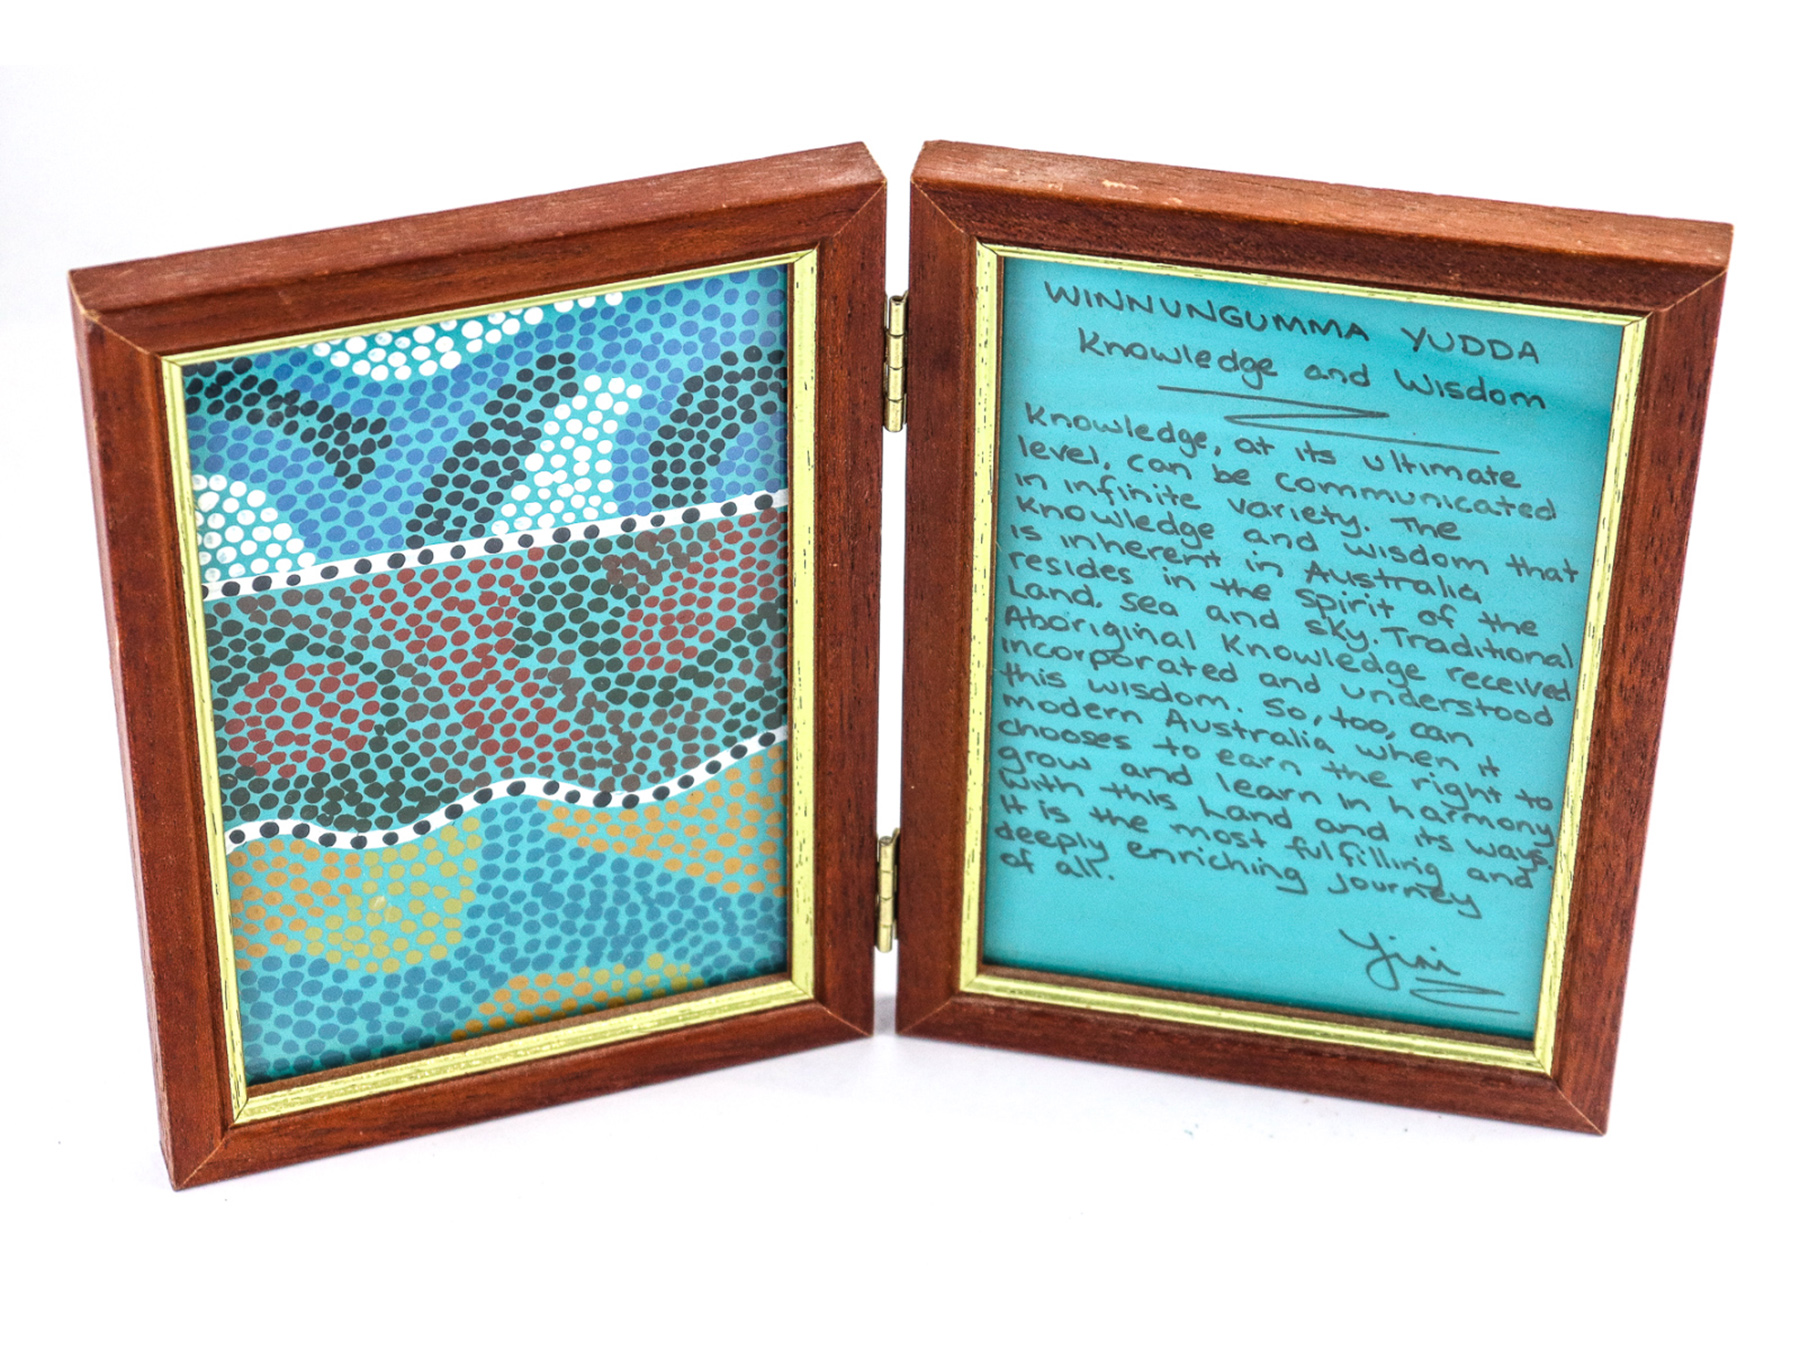 WINNUNGUMMA YUDDA
Knowledge and Wisdom
Knowledge, at its ultimate
level, can be communicated
in infinite variety. The
knowledge and wisdom that
is inherent in Australia
resides in the spirit of the
Land, sea and sky. Traditional
Aboriginal Knowledge received
incorporated and understood
this wisdom. So, too, can
modern Australia when it
chooses to earn the right to
grow and learn in harmony
with this Land and its ways.
It is the most fulfilling and
deeply enriching journey
of all.